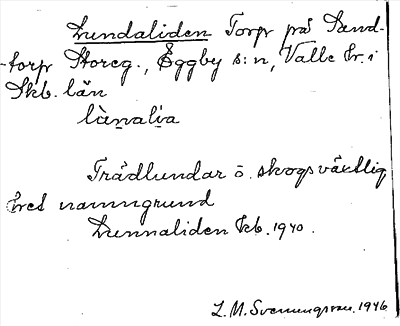 Lundaliden Torp på Sand-
-torp Storeg., Eggby s:n, Valle hr. i
Skb. län
lùnalia
Trädlundar o. skogsväxtlig
hed namngrund
Lunnaliden Ekb. 1940.
L. M. Svenungsson. 1946